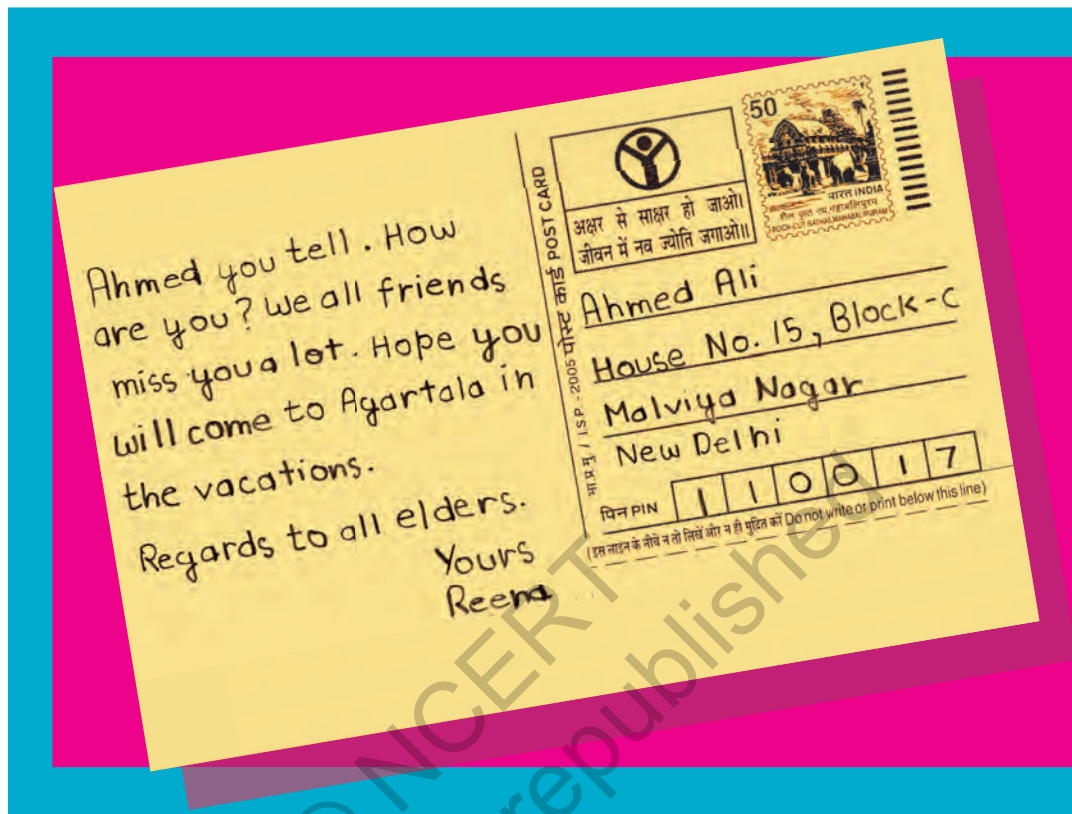 Ahmed you tell. How
are you? We all friends
miss you a lot. Hope you
will come to Agartala in
the vacations.
Regards to all elders.
Yours
Reena
भा.प्र.मु. / I.S.P. -2005 पोस्ट कार्ड POST CARD
अक्षर से साक्षर हो जाओ।
जीवन में नव ज्योति जगाओ॥
50
भारत INDIA
शैल कृत्त रथ, महाबलिपुरम
ROCK-CUT RATHAS, MAHABALIPURAM
Ahmed Ali
House No. 15, Block-C
Malviya Nagar
New Delhi
पिन PIN 1 1 0 0 1 7
(इस लाइन के नीचे न तो लिखें और न ही मुद्रित करें Do not write or print below this line)
© NCERT
republished